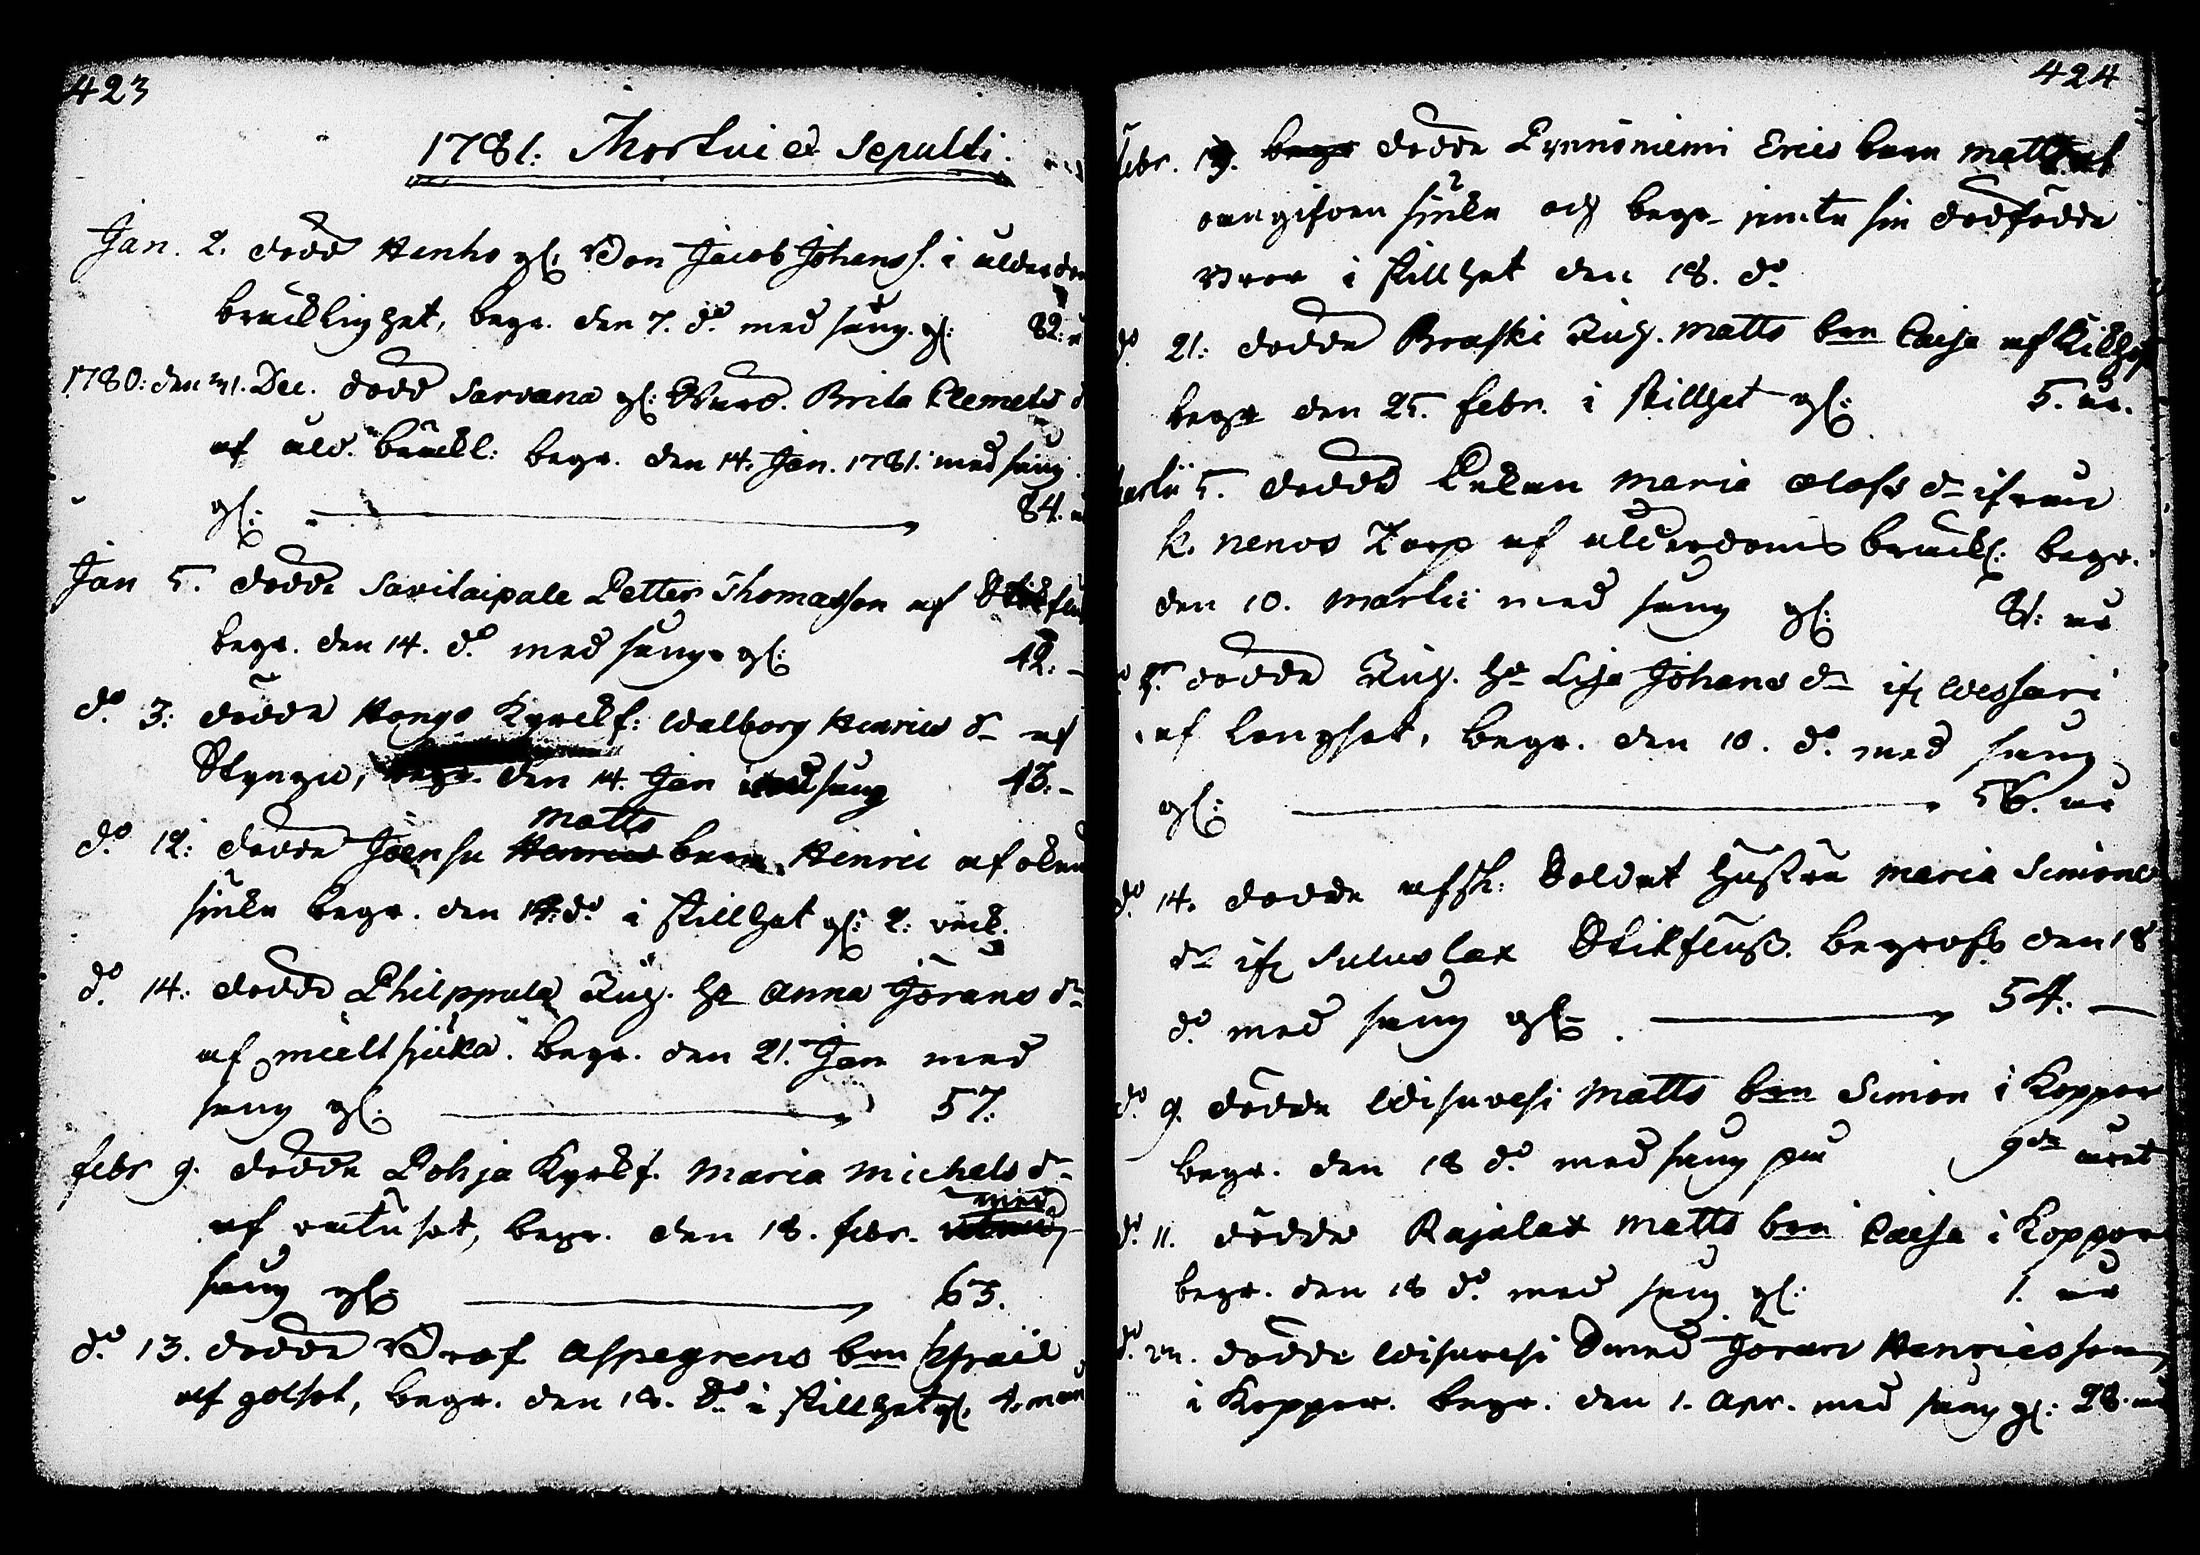 423
1781. Mortui et Sepulti.
Jan. 2. dödde Hanho gl: Bon Jacob Johanss. i ålderdom
bräcklighet, begr. den 7. do med sång. gl: 82: å
1780: den 31. Dec. dödde Sarvana gl: Brita Clemets d
af åld. bräckl: begr. den 14. Jan. 1781. med sång.
gl: 84. å
Jan 5. dödde Savitaipale Petter Thomasson af Stikflu
begr. den 14. do med sång. gl: 42. -
do 3: dödde Hongo Kyrckf: Walborg Henrics d- af
Styng, begr. den 14. Jan med sång 43. -
Matts
do 12: dödde Joensu Henrics barn Henric af okän
siuka begr. den 14. do i stillhet gl: 2: veck.
do 14: dödde Philppula Ryh. hu Anna Jörans d-
af mieltsiuka. begr. den 21. Jan med
sång gl: 57.
febr 9. dödde Pohja Kyrkf. Maria Michels d-
med
af vattusot, begr. den 18. febr.
sång gl: 63.
do 13. dödde Prof Aspegrens brn Israel
af golsot, begr. den 18. do i stillhet gl. 4. mån
424
febr. 19. begr dödde Pynnöniemi Erics barn Matts af
oangifven siuka och begr. jemte sin dödfödde
Bror i stillhet den 18. do
do 21: dödde Braski Ryh. Matts brn Caisa af Kikhost
begr den 25. febr. i stillhet gl: 5. år.
Martii 5. dödde Pigan Maria Olofs d- ifrån
k. nenos Torp af ålderdoms bräckl: begr.
den 10. Martii med sång gl: 81: år
do 5. dödde Ryh. hu Lisa Johans d- if Wessari
af Langsot, begr. den 10. do med sång
gl: 56. år
do 14. dödde afsk: Soldat hustru Maria Simons
d- if Suluslax Stikfluss. begrofs den 18
do med sång gl: 54. -
do 9. dödde Wisuvesi Matts brn Simon i Koppor
begr. den 18 do med sång på 9de året
do 11. dödde Rajalax Matts brn Caisa i Koppor
begr. den 18 do med sång gl: 1. år
do 22. dödde Wisuvesi Dreng Jöran Henricsson
i Koppor. begr. den 1. Apr. med sång gl: 28. år